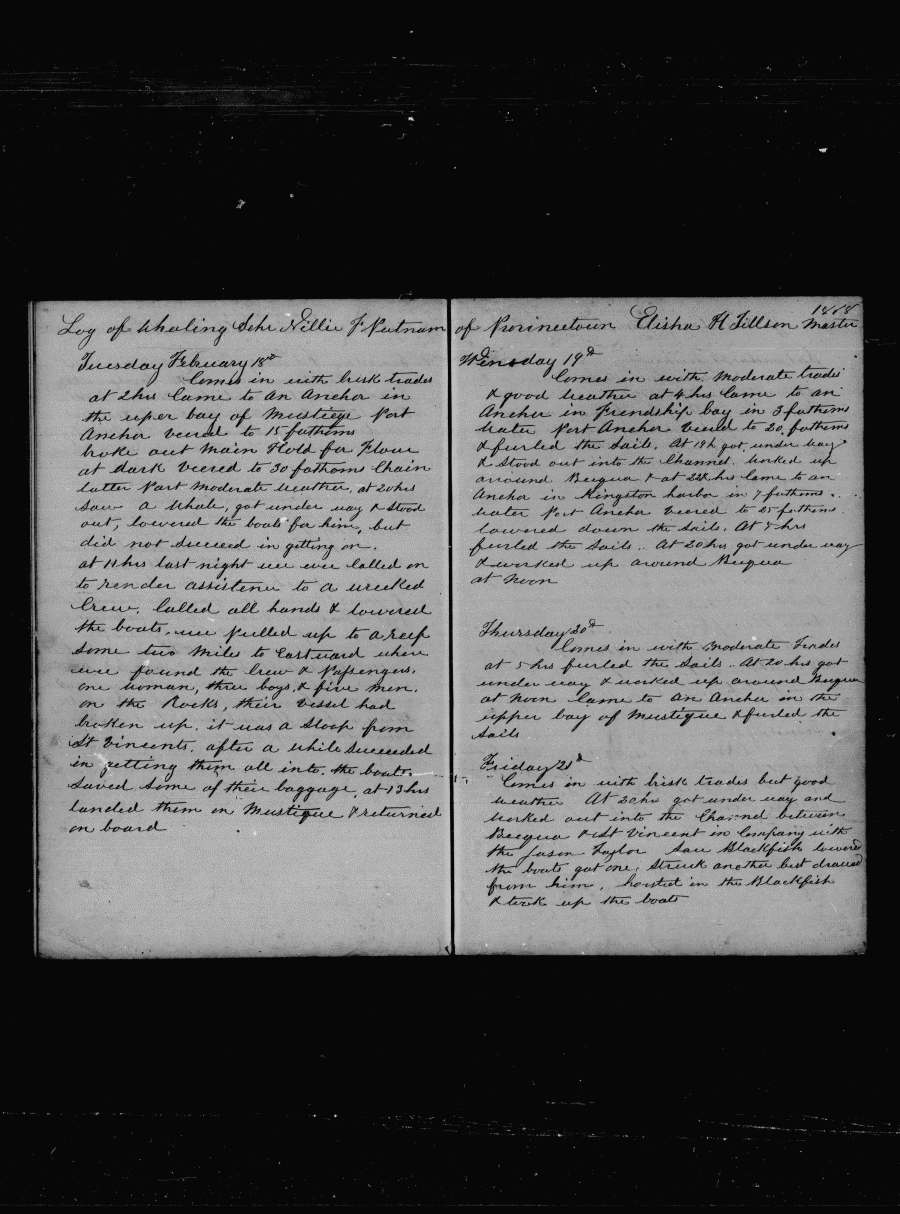 Log of Whaling Schr Nillie F Putnam
Tuesday February 18th
Comes in with brisk trades
at 2 hrs Came to an Anchor in
the uper bay of Mustiege Port
Anchor veered to 15 fathoms
broke out Main Hold for Flour
at dark veered to 30 fathoms Chain
latter Part moderate weather, at 20 hrs
saw a Whale, got under way & stood
out, lowered the boats for him, but
did not succeed in getting on.
at 11 hrs last night we were called on
to render assistence to a wrecked
Crew. Called all hands & lowered
the boats, we pulled up to a reef
some two miles to Eastward where
we found the Crew & Passengers,
one woman, three boys, & five men.
on the Rocks, their vessel had
broken up. it was a Sloop from
St Vincents. after a while succeeded
in getting them all into the boats.
saved some of their baggage, at 13 hrs
landed them on Mustique & returned
on board
of Provincetown Elisha H Tillson Master
1868
Wensday 19th
Comes in with moderate trades
& good weather at 4 hrs Came to an
Anchor in Frendship bay in 3 fathoms
water Port Anchor veered to 20 fathoms
& furled the sails. At 19 h got under way
& stood out into the Channel. worked up
arround Bequa & at 22 hrs Came to an
Anchor in Kingston harbor in 7 fathoms.
water Port Anchor veered to 25 fathoms.
lowered down the sails. At 5 hrs
furled the sails .. At 20 hrs got under way
& worked up around Bequa
at Noon
Thursday 20th
Comes in with moderate Trades
at 5 hrs furled the sails .. At 20 hrs got
under way & worked up around Bequa
at Noon Came to an Anchor in the
upper bay of Mustique & furled the
sails
Friday 21st
Comes in with brisk trades but good
weather At 20 hrs got under way and
worked out into the Channel between
Becqua & St Vincent in Company with
the Jason Taylor saw Blackfish lowered
the boats got one, struck another but drawed
from him, hoisted in the Blackfish
& took up the boats